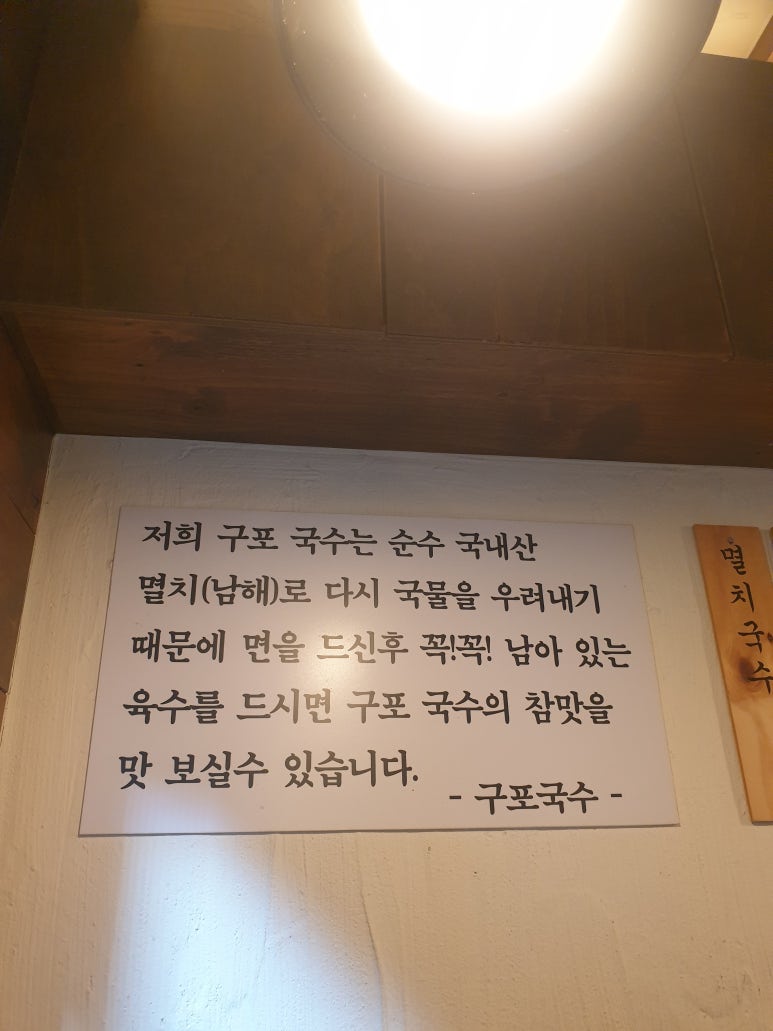 저희 구포 국수는 순수 국내산
멸치(남해)로 다시 국물을 우려내기
때문에 면을 드신후 꼭!꼭! 남아 있는
육수를 드시면 구포 국수의 참맛을
맛 보실수 있습니다.
- 구포국수 -
멸치국수